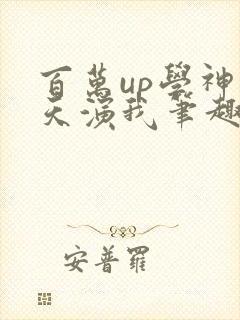 百萬up學神
天演我筆趣
安普羅